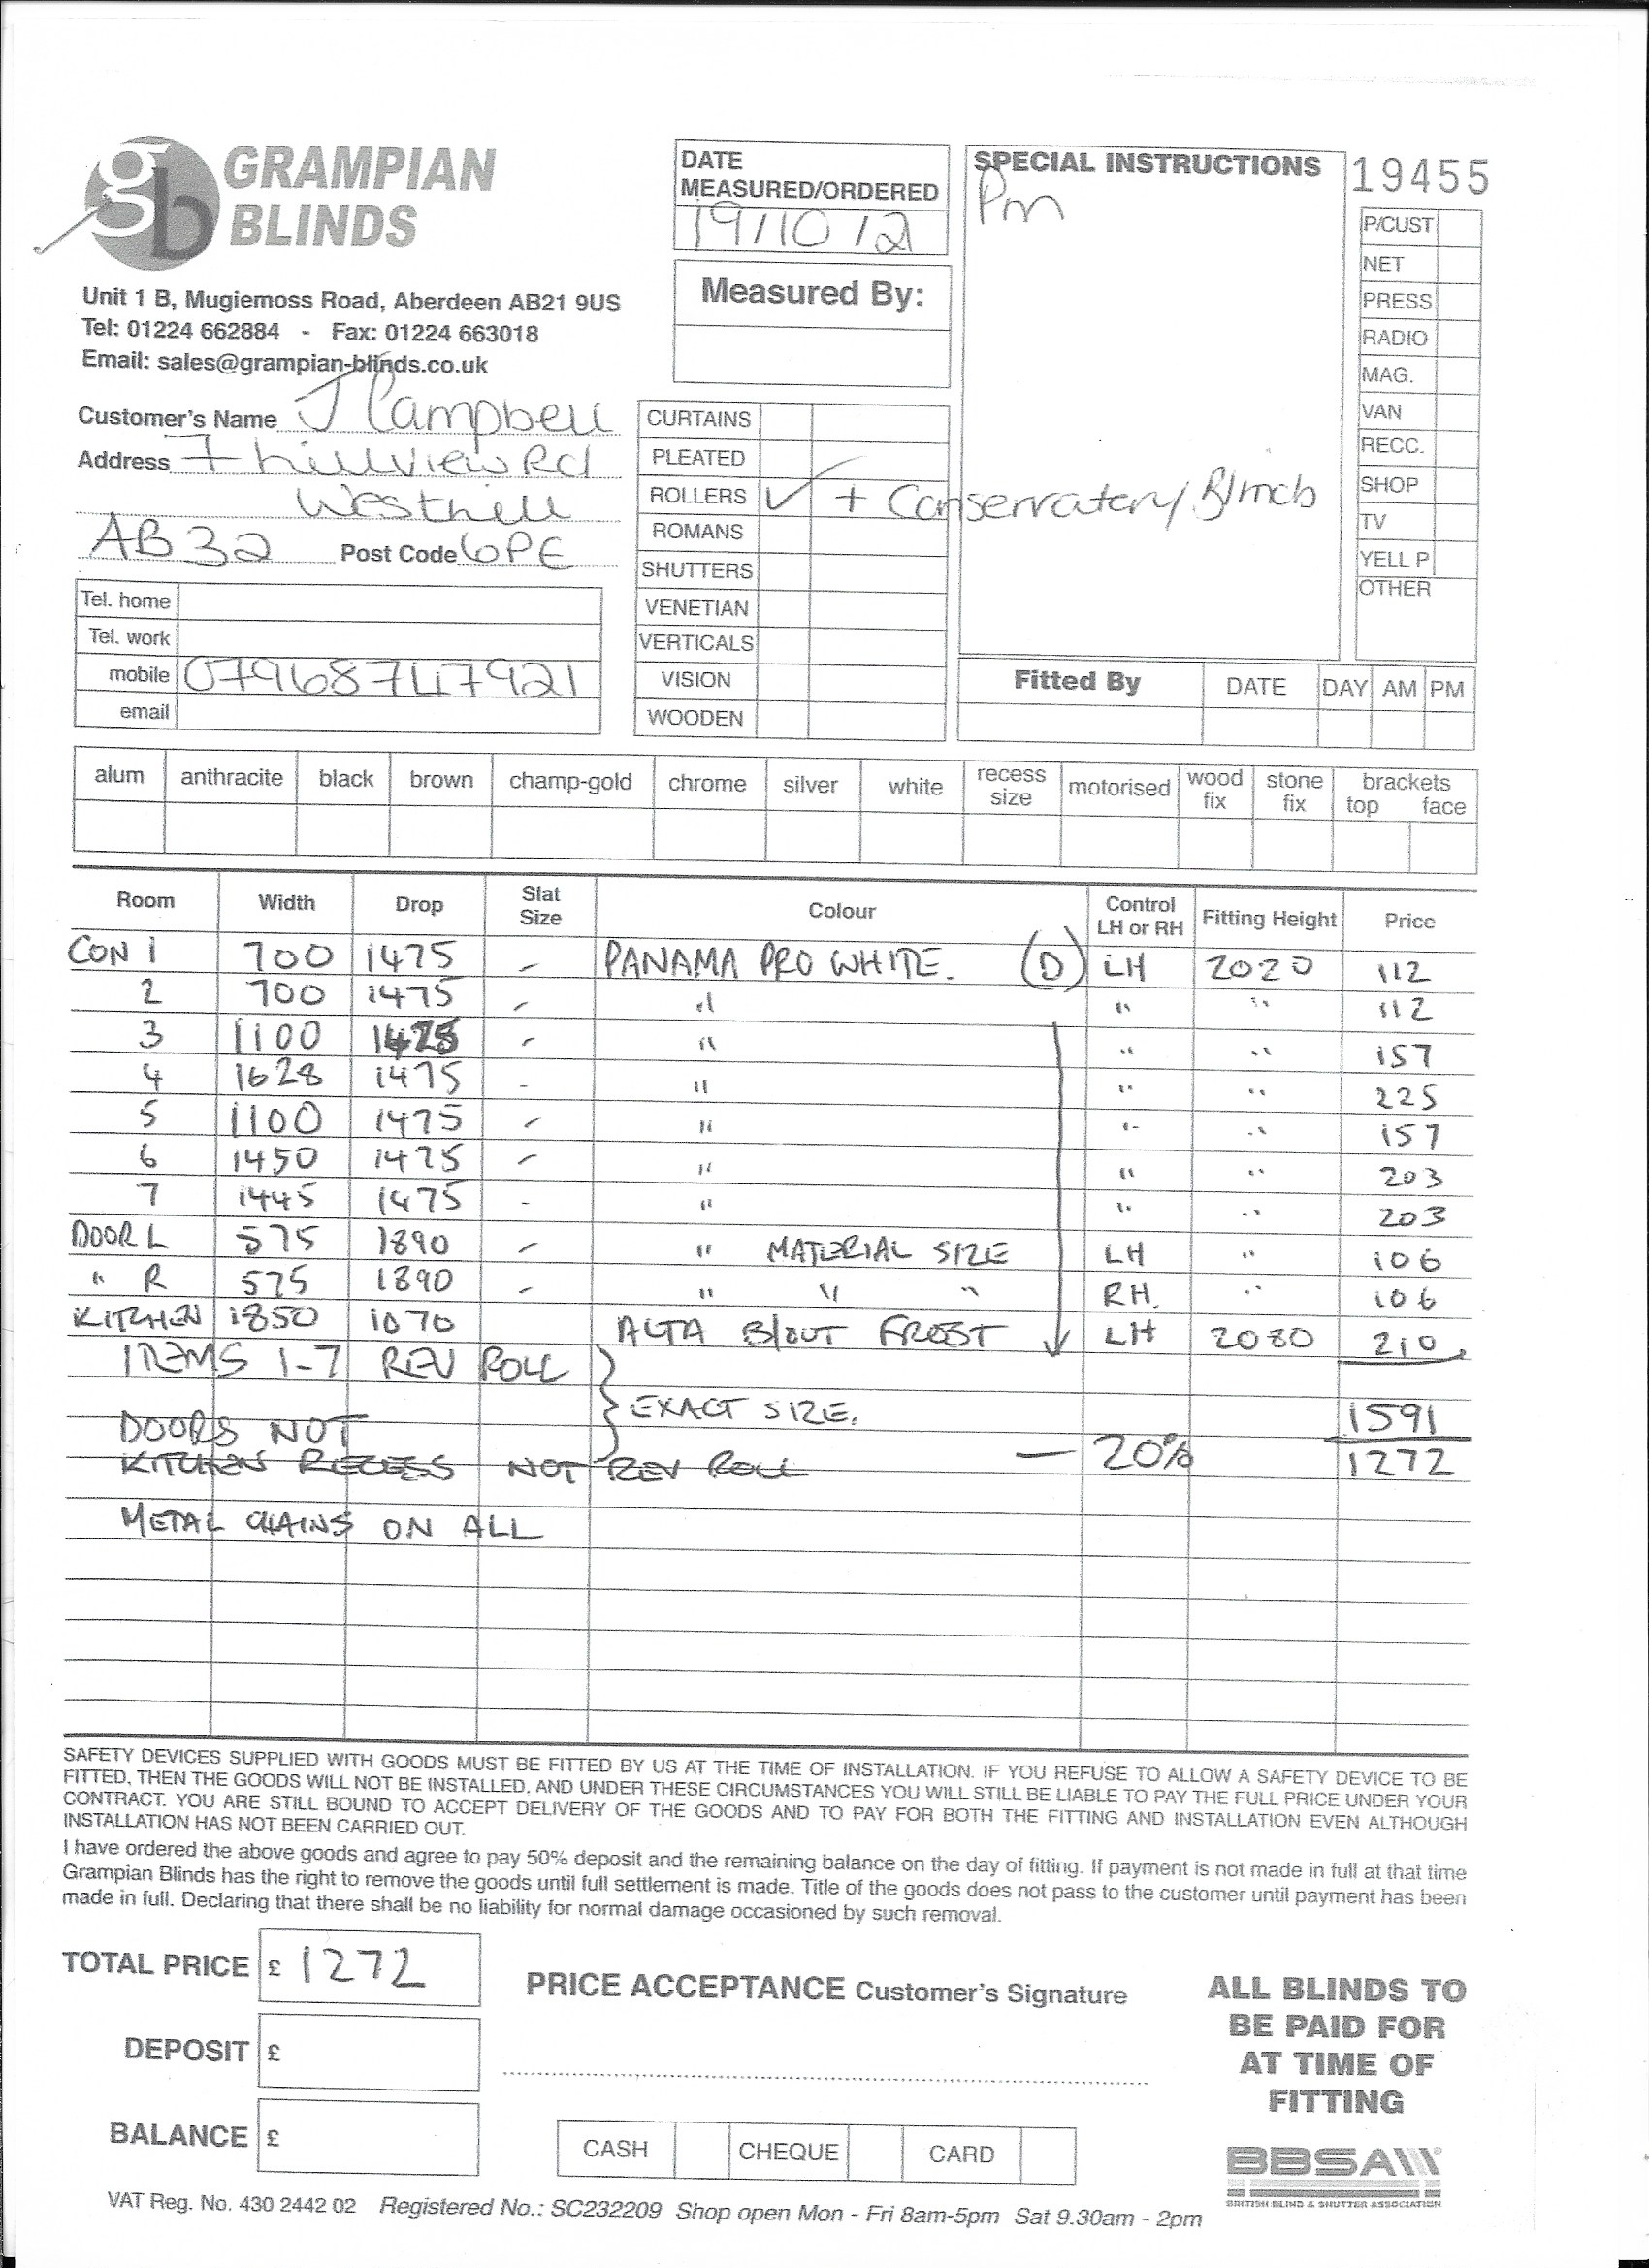 GRAMPIAN
BLINDS
Unit 1 B, Mugiemoss Road, Aberdeen AB21 9US
Tel: 01224 662884 - Fax: 01224 663018
Email: sales@grampian-blinds.co.uk
DATE
MEASURED/ORDERED
19/10/12
Measured By:
SPECIAL INSTRUCTIONS
Pm
19455
P/CUST
NET
PRESS
RADIO
MAG.
VAN
RECC.
SHOP
TV
YELL P
OTHER
Customer's Name J Campbell
Address 7 hillview Rd
Westhill
AB32 Post Code 6PE
Tel. home
Tel. work
mobile 07968747921
email
CURTAINS
PLEATED
ROLLERS ✓ + Conservatory Blinds
ROMANS
SHUTTERS
VENETIAN
VERTICALS
VISION
WOODEN
Fitted By DATE DAY AM PM
alum anthracite black brown champ-gold chrome silver white recess size motorised wood fix stone fix brackets top face
Room Width Drop Slat Size Colour Control LH or RH Fitting Height Price
CON 1 700 1475 - PANAMA PRO WHITE. (D) LH 2020 112
2 700 1475 - " " " 112
3 1100 1475 - " " " 157
4 1628 1475 - " " " 225
5 1100 1475 - " " " 157
6 1450 1475 - " " " 203
7 1445 1475 - " " " 203
DOOR L 575 1890 - " MATERIAL SIZE LH " 106
" R 575 1890 - " " " RH. " 106
KITCHEN 1850 1070 ALTA B/OUT FROST LH 2080 210
ITEMS 1-7 REV ROLL
EXACT SIZE. 1591
DOORS NOT
KITCHEN RECESS NOT REV ROLL — 20% 1272
METAL CHAINS ON ALL
SAFETY DEVICES SUPPLIED WITH GOODS MUST BE FITTED BY US AT THE TIME OF INSTALLATION. IF YOU REFUSE TO ALLOW A SAFETY DEVICE TO BE
FITTED, THEN THE GOODS WILL NOT BE INSTALLED, AND UNDER THESE CIRCUMSTANCES YOU WILL STILL BE LIABLE TO PAY THE FULL PRICE UNDER YOUR
CONTRACT. YOU ARE STILL BOUND TO ACCEPT DELIVERY OF THE GOODS AND TO PAY FOR BOTH THE FITTING AND INSTALLATION EVEN ALTHOUGH
INSTALLATION HAS NOT BEEN CARRIED OUT.
I have ordered the above goods and agree to pay 50% deposit and the remaining balance on the day of fitting. If payment is not made in full at that time
Grampian Blinds has the right to remove the goods until full settlement is made. Title of the goods does not pass to the customer until payment has been
made in full. Declaring that there shall be no liability for normal damage occasioned by such removal.
TOTAL PRICE £ 1272
DEPOSIT £
BALANCE £
PRICE ACCEPTANCE Customer's Signature
CASH CHEQUE CARD
ALL BLINDS TO
BE PAID FOR
AT TIME OF
FITTING
BBSA
BRITISH BLIND & SHUTTER ASSOCIATION
VAT Reg. No. 430 2442 02 Registered No.: SC232209 Shop open Mon - Fri 8am-5pm Sat 9.30am - 2pm